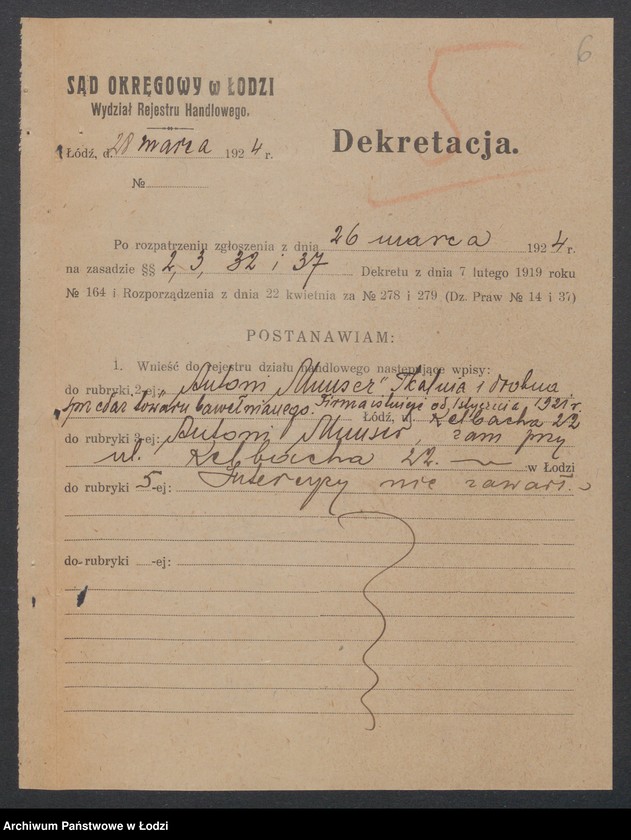 6
SĄD OKRĘGOWY w ŁODZI
Wydział Rejestru Handlowego.
Łódź, d. 28 marca 1924 r.
Dekretacja.
№
Po rozpatrzeniu zgłoszenia z dnia 26 marca 1924 r.
na zasadzie §§ 2, 3, 32 i 37 Dekretu z dnia 7 lutego 1919 roku
№ 164 i Rozporządzenia z dnia 22 kwietnia za № 278 i 279 (Dz. Praw № 14 i 37)
POSTANAWIAM:
1. Wnieść do rejestru działu handlowego następujące wpisy:
do rubryki 2-ej: „Antoni Munser" Tkalnia i drobna
sprzedaż towaru bawełnianego. Firma istnieje od 1 stycznia 1921 r.
Łódź, ul. Kelbacha 22
do rubryki 3-ej: Antoni Munser, zam przy
ul. Kelbacha 22. w Łodzi
do rubryki 5-ej: Intercyzy nie zawarł.
do rubryki -ej:
Archiwum Państwowe w Łodzi